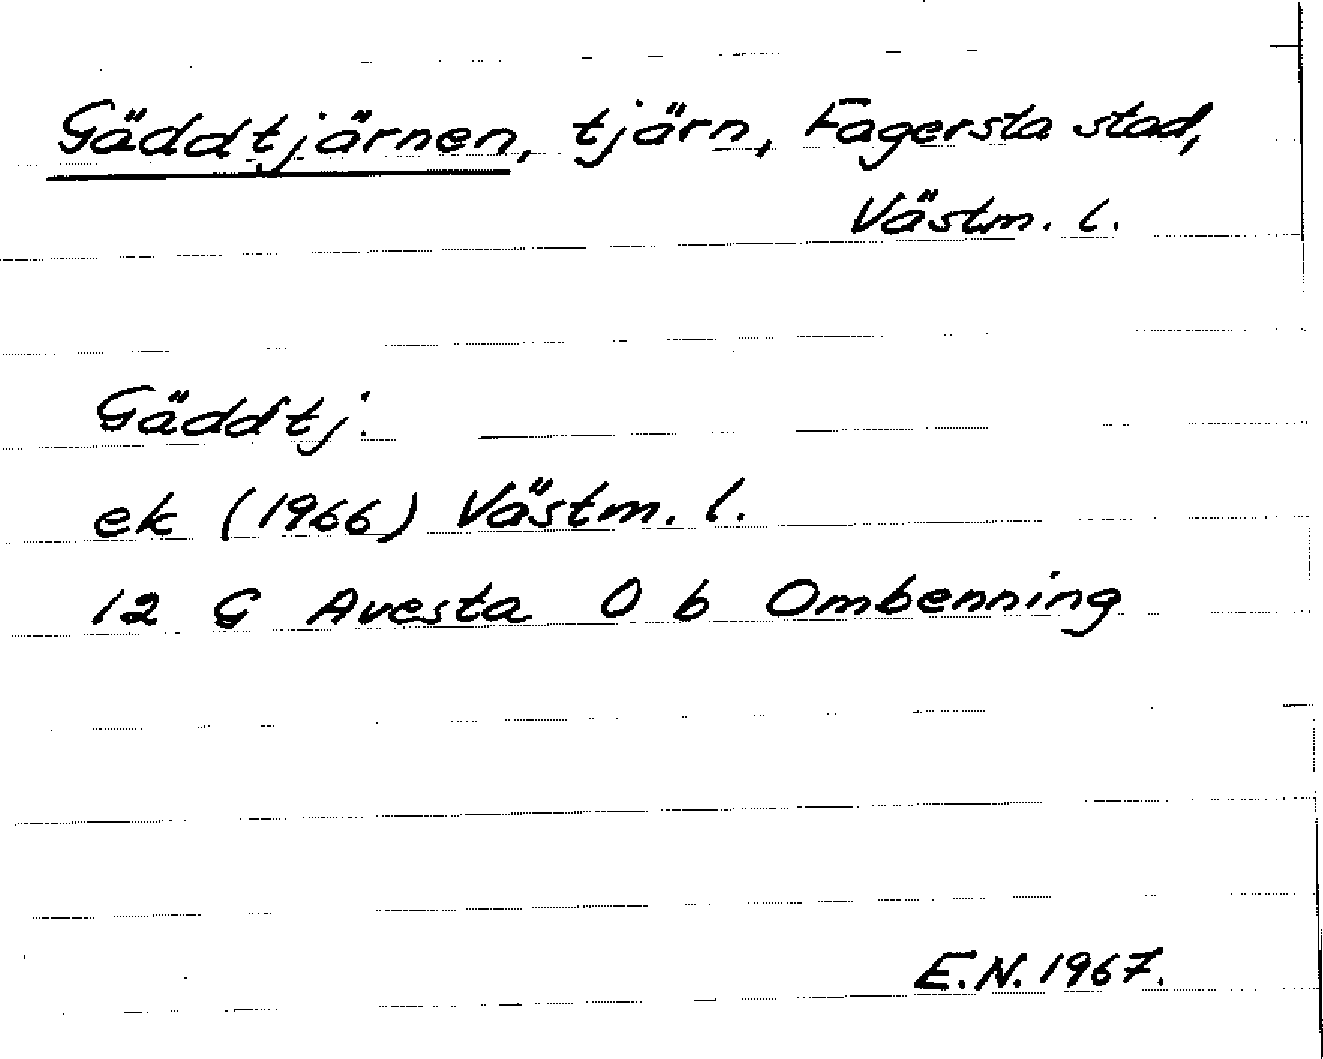 Gäddtjärnen, tjärn, Fagersta stad,
Västm. l.
Gäddtj.
ek (1966) Västm. l.
12 G Avesta 0 b Ombenning
E.N. 1967.